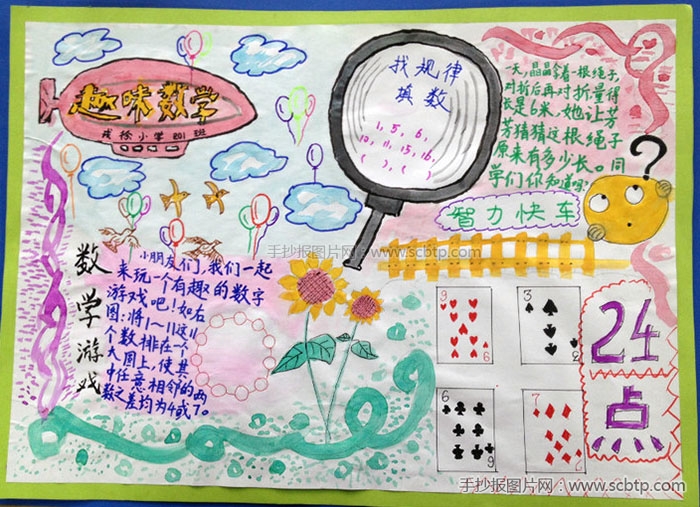 趣味数学
戎徐小学201班
找规律
填数
1, 5, 6,
10, 11, 15, 16,
( ), ( )
一天,晶晶拿着一根绳子,
对折后再对折,量得
长是6米,她让芳
芳猜猜这根绳子
原来有多少长。同
学们你知道吗?
?
智力快车
手抄报图片网:www.scbtp.com
数学游戏
小朋友们,我们一起
来玩一个有趣的数字
游戏吧!如右
图:将1~11这11
个数排在一个
大圆上,使其
中任意相邻的两
数之差均为4或7。
9
9
3
6
6
7
24
点
手抄报图片网:www.scbtp.com